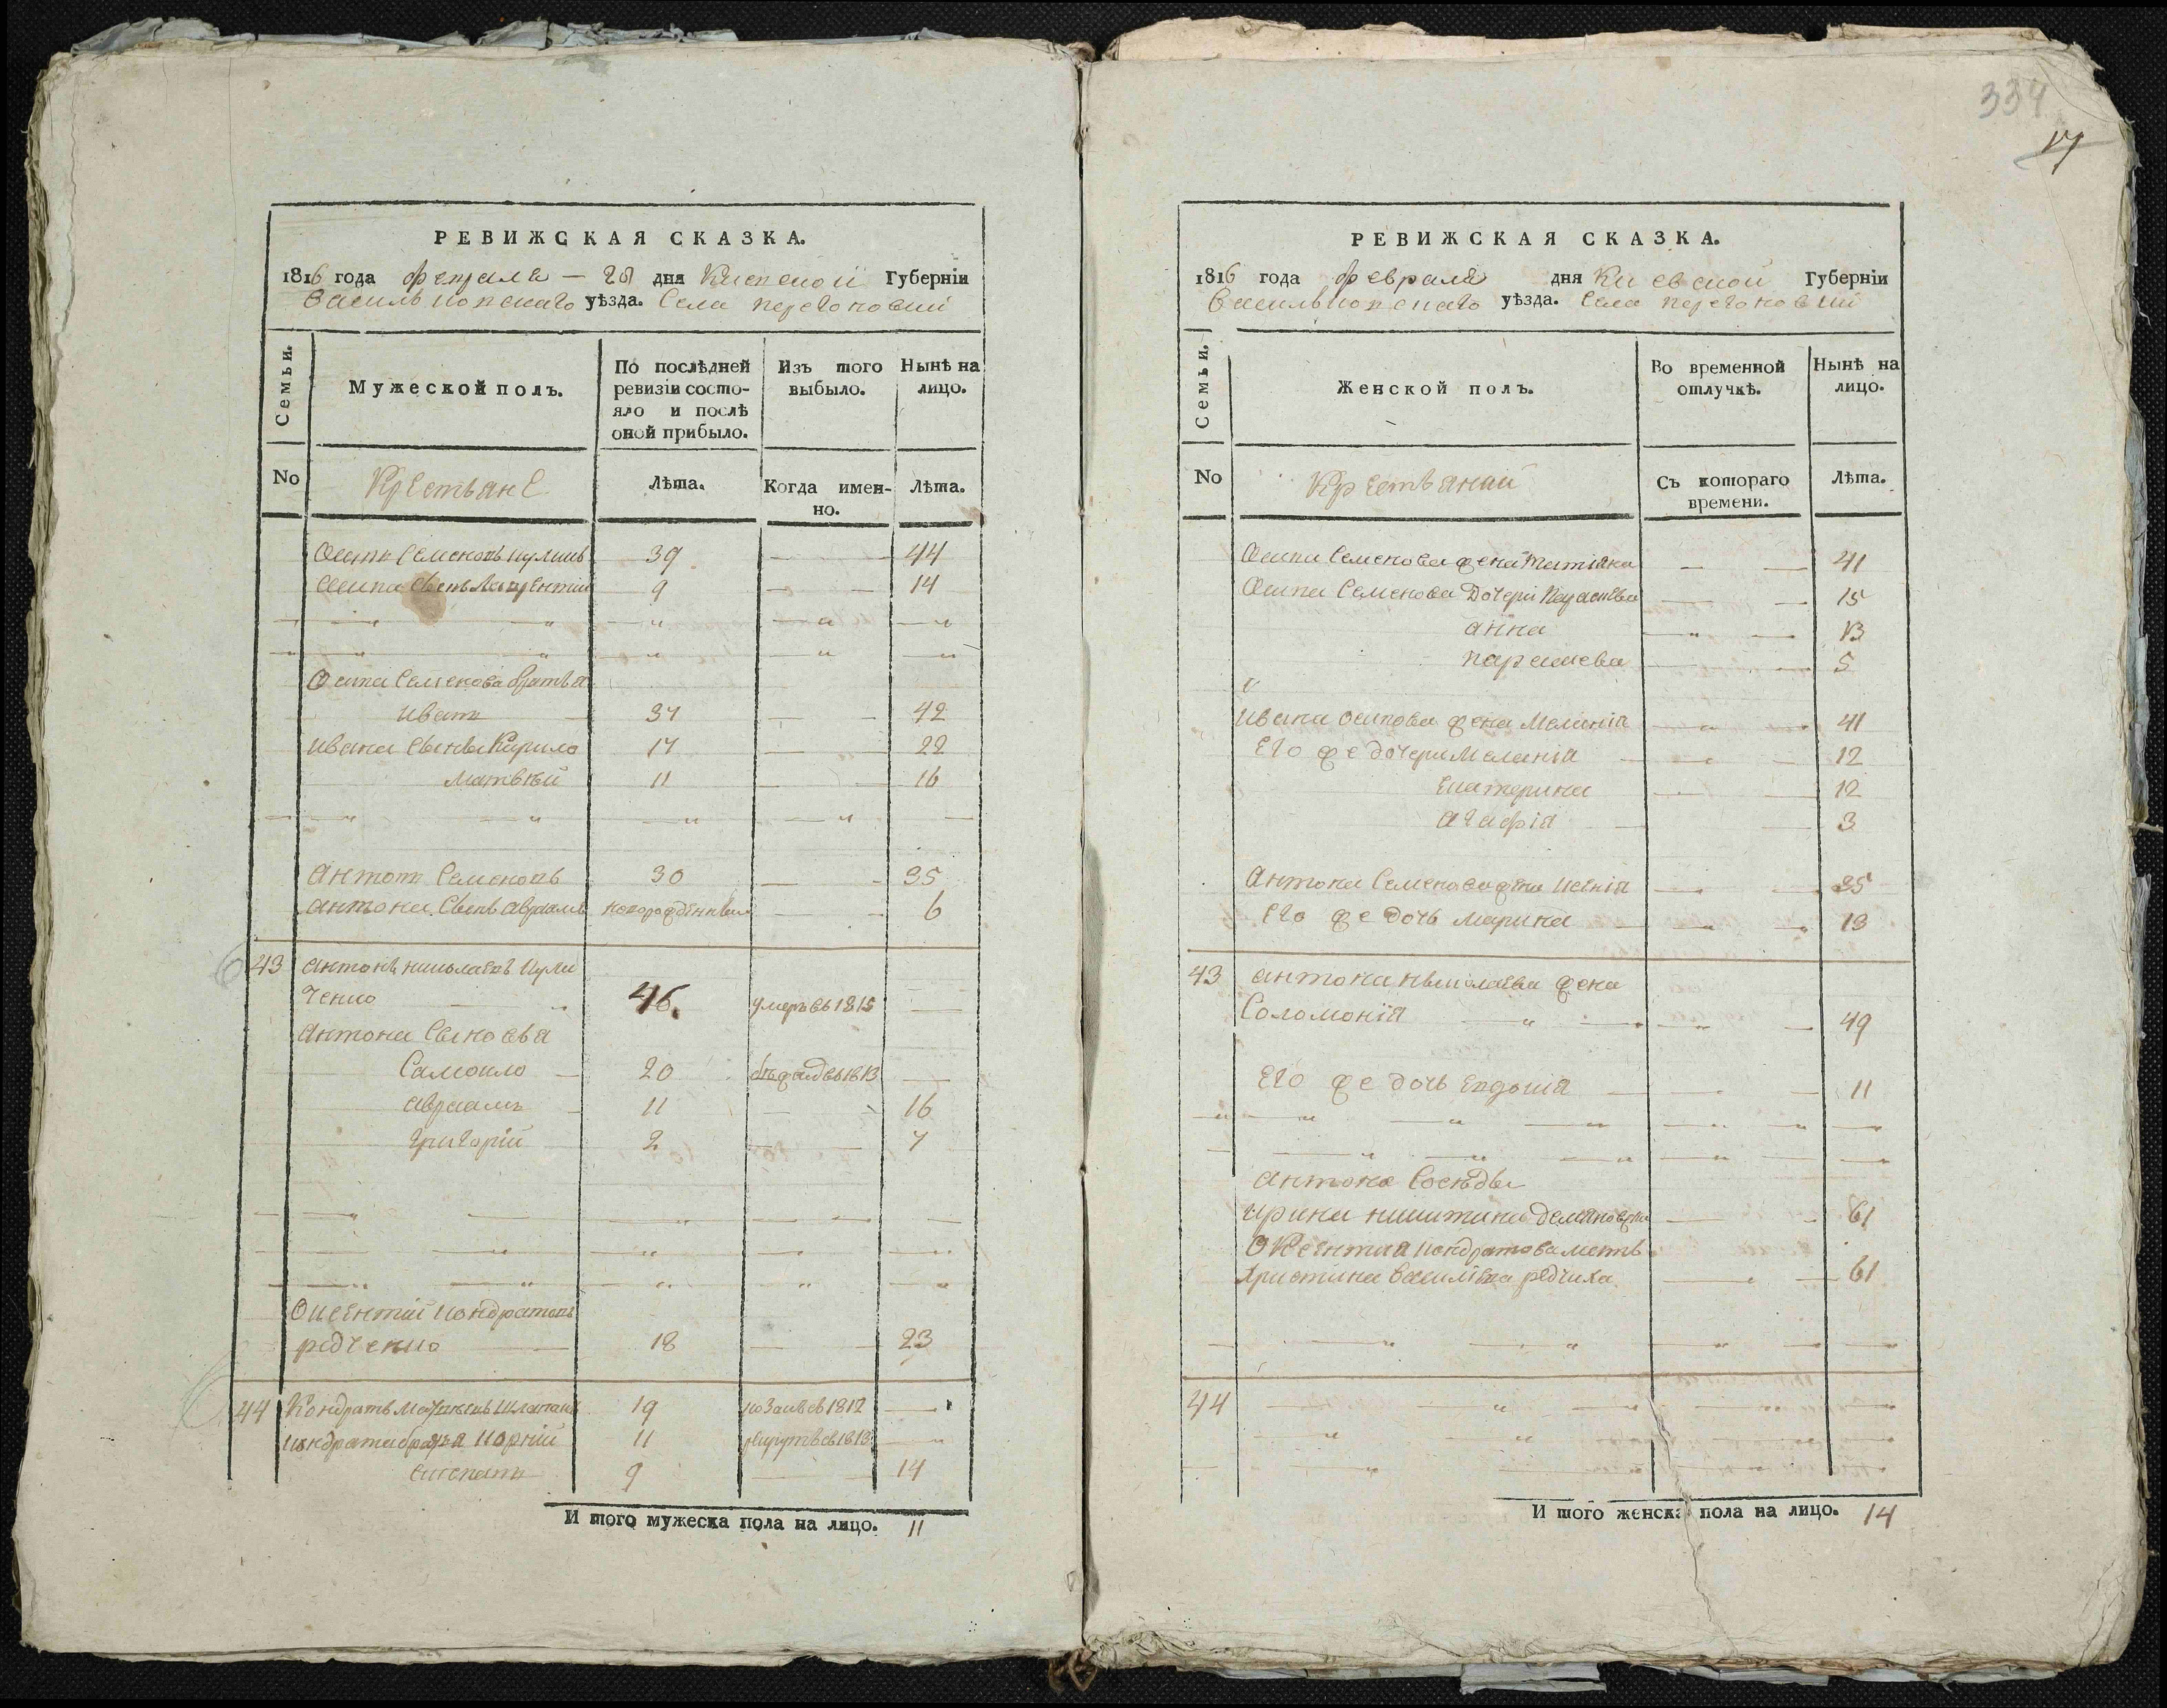 334
17
РЕВИЖСКАЯ СКАЗКА.
1816 года февраля — 28 дня Киевской Губерніи
Васильковскаго уѣзда. Села Перегоновки
Семьи.
Мужеской полъ.
По послѣдней ревизіи состояло и послѣ оной прибыло.
Изъ того выбыло.
Нынѣ на лицо.
No
Крестьяне
Лѣта.
Когда именно.
Лѣта.
Осипъ Семеновъ Кулишъ 39 — 44
Осипа сынъ Лаврентій 9 — — 14
Осипа Семенова братья
Иванъ 37 — 42
Ивана сыновья Кирило 17 — 22
Матвѣй 11 — 16
Антонъ Семеновъ 30 — 35
Антона сынъ Авраамъ новорожденный — 6
43 Антонъ Николаевъ Кули
ченко 46. умеръ въ 1815 —
Антона сыновья
Самоило — 20 бѣжалъ въ 1813 —
Авраамъ 11 — 16
Григорій 2 — 7
Оксентій Кондратовъ
редченко — 18 — 23
44 Кондратъ 19 въ 1812 —
Кондрата братья Корній 11 рекрутъ въ 1813 —
9 — 14
И того мужеска пола на лицо. 11
РЕВИЖСКАЯ СКАЗКА.
1816 года февраля дня Киевской Губерніи
Васильковскаго уѣзда. Села Перегоновки
Семьи.
Женской полъ.
Во временной отлучкѣ.
Нынѣ на лицо.
No
Крестьянки
Съ котораго времени.
Лѣта.
Осипа Семенова жена Татіяна — — 41
Осипа Семенова дочери — — 15
Анна — 13
Параскева — 5
Ивана Осипова жена Меланія — 41
Его же дочери Меланія — 12
Екатерина — 12
Агафія — 3
Антона Семенова жена Ксенія — 35
Его же дочь Марина — 13
43 Антона Николаева жена
Соломонія — 49
Его же дочь Евдокія — 11
Антона сосѣды
Ирина Никитина — 61
Оксентія Кондратова мать
Христина Василіева редчиха — 61
44
И того женска пола на лицо. 14